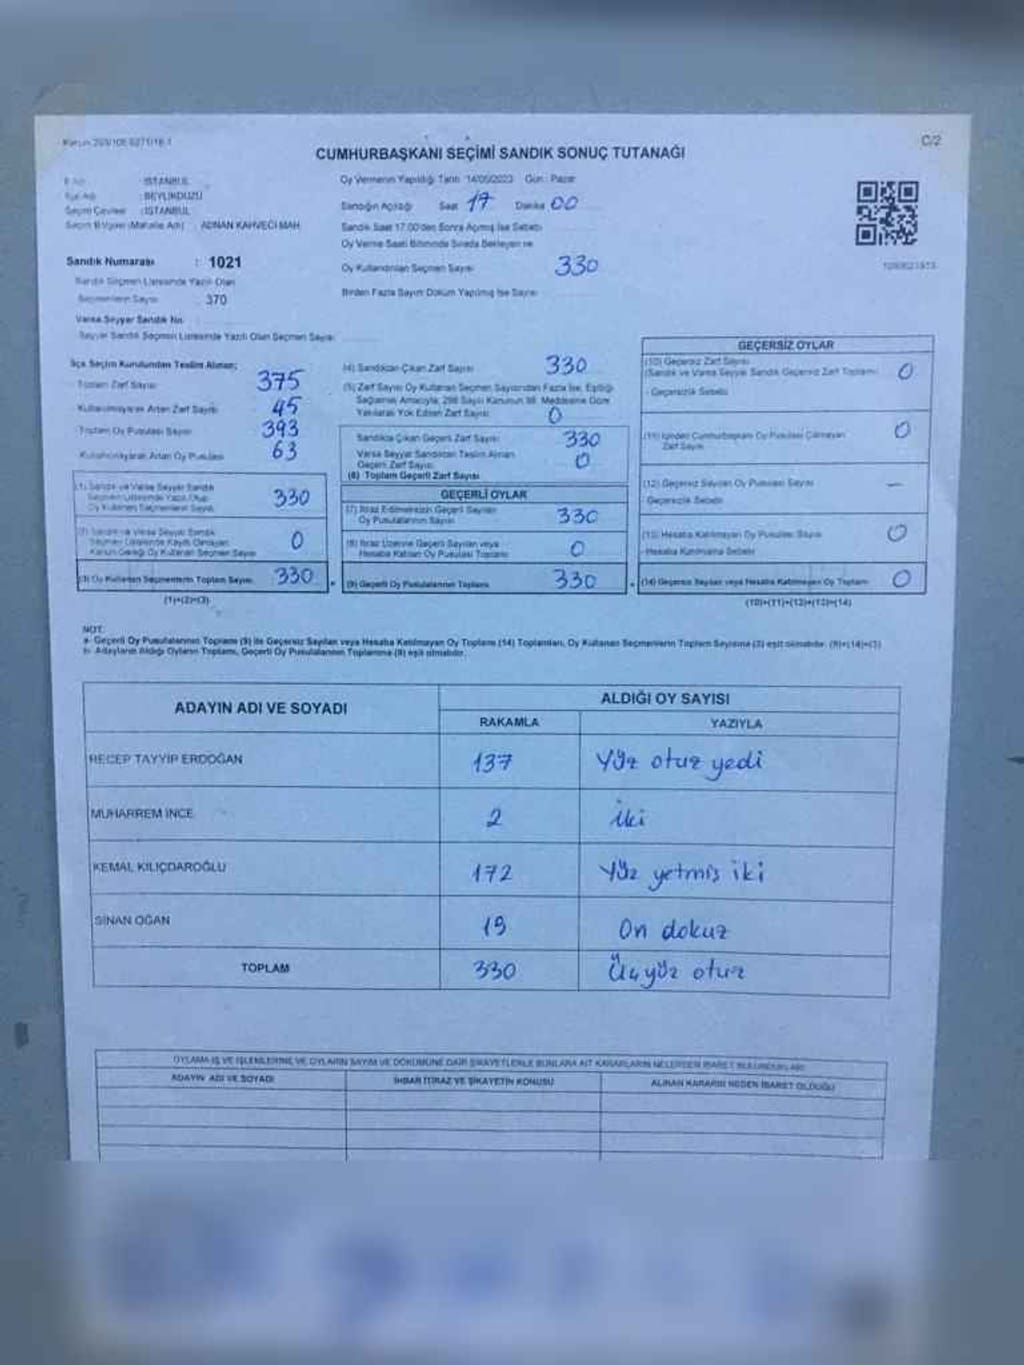 C/2
CUMHURBAŞKANI SEÇİMİ SANDIK SONUÇ TUTANAĞI
: İSTANBUL
: BEYLİKDÜZÜ
Seçim Çevresi : İSTANBUL
Seçim Bölgesi (Mahalle Adı) : ADNAN KAHVECİ MAH.
Sandık Numarası : 1021
Sandık Seçmen Listesinde Yazılı Olan
Seçmenlerin Sayısı 370
Varsa Seyyar Sandık No
Seyyar Sandık Seçmen Listesinde Yazılı Olan Seçmen Sayısı
Oy Vermenin Yapıldığı Tarih: 14/05/2023 Gün : Pazar
Sandığın Açıldığı Saat 17 Dakika 00
Sandık Saat 17.00'den Sonra Açılmış İse Sebebi
Oy Verme Saati Bitiminde Sırada Bekleyen ve
Oy Kullandırılan Seçmen Sayısı 330
Birden Fazla Sayım Döküm Yapılmış İse Sayısı
İlçe Seçim Kurulundan Teslim Alınan;
Toplam Zarf Sayısı 375
Kullanılmayarak Artan Zarf Sayısı 45
Toplam Oy Pusulası Sayısı 393
Kullanılmayarak Artan Oy Pusulası 63
(1) Sandık ve Varsa Seyyar Sandık
Seçmen Listesinde Yazılı Olup
Oy Kullanan Seçmenlerin Sayısı 330
(2) Sandık ve Varsa Seyyar Sandık
Seçmen Listesinde Kayıtlı Olmayan
Kanun Gereği Oy Kullanan Seçmen Sayısı 0
(3) Oy Kullanan Seçmenlerin Toplam Sayısı 330
(1)+(2)=(3)
(4) Sandıktan Çıkan Zarf Sayısı 330
(5) Zarf Sayısı Oy Kullanan Seçmen Sayısından Fazla İse, Eşitliği
Sağlamak Amacıyla, 298 Sayılı Kanunun 98. Maddesine Göre
Yakılarak Yok Edilen Zarf Sayısı 0
Sandıkta Çıkan Geçerli Zarf Sayısı 330
Varsa Seyyar Sandıktan Teslim Alınan
Geçerli Zarf Sayısı 0
(6) Toplam Geçerli Zarf Sayısı
GEÇERLİ OYLAR
(7) İtiraz Edilmeksizin Geçerli Sayılan
Oy Pusulalarının Sayısı 330
(8) İtiraz Üzerine Geçerli Sayılan veya
Hesaba Katılan Oy Pusulası Toplamı 0
(9) Geçerli Oy Pusulalarının Toplamı 330
GEÇERSİZ OYLAR
(10) Geçersiz Zarf Sayısı
(Sandık ve Varsa Seyyar Sandık Geçersiz Zarf Toplamı) 0
- Geçersizlik Sebebi
(11) İçinden Cumhurbaşkanı Oy Pusulası Çıkmayan
Zarf Sayısı 0
(12) Geçersiz Sayılan Oy Pusulası Sayısı -
- Geçersizlik Sebebi
(13) Hesaba Katılmayan Oy Pusulası Sayısı 0
- Hesaba Katılmama Sebebi
(14) Geçersiz Sayılan veya Hesaba Katılmayan Oy Toplamı 0
(10)+(11)+(12)+(13)=(14)
NOT:
a- Geçerli Oy Pusulalarının Toplamı (9) ile Geçersiz Sayılan veya Hesaba Katılmayan Oy Toplamı (14) Toplamları, Oy Kullanan Seçmenlerin Toplam Sayısına (3) eşit olmalıdır. (9)+(14)=(3)
b- Adayların Aldığı Oyların Toplamı, Geçerli Oy Pusulalarının Toplamına (9) eşit olmalıdır.
ADAYIN ADI VE SOYADI ALDIĞI OY SAYISI
RAKAMLA YAZIYLA
RECEP TAYYİP ERDOĞAN 137 Yüz otuz yedi
MUHARREM İNCE 2 İki
KEMAL KILIÇDAROĞLU 172 Yüz yetmiş iki
SİNAN OĞAN 19 On dokuz
TOPLAM 330 Üçyüz otuz
OYLAMA İŞ VE İŞLEMLERİNE VE OYLARIN SAYIM VE DÖKÜMÜNE DAİR ŞİKAYETLERLE BUNLARA AİT KARARLARIN NELERDEN İBARET BULUNDUKLARI
ADAYIN ADI VE SOYADI İHBAR İTİRAZ VE ŞİKAYETİN KONUSU ALINAN KARARIN NEDEN İBARET OLDUĞU